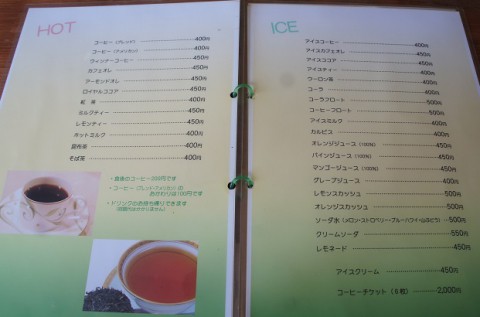 HOT
コーヒー (ブレンド) 400円
コーヒー (アメリカン) 400円
ウィンナーコーヒー 450円
カフェオレ 450円
アーモンドオレ 450円
ロイヤルココア 450円
紅 茶 400円
ミルクティー 450円
レモンティー 450円
ホットミルク 400円
昆布茶 400円
そば茶 400円
・食後のコーヒー200円です
・コーヒー (ブレンド・アメリカン) の
おかわりは100円です
・ドリンクのお持ち帰りできます
ICE
アイスコーヒー 400円
アイスカフェオレ 450円
アイスココア 450円
アイスティー 400円
ウーロン茶 400円
コーラ 400円
コーラフロート 500円
コーヒーフロート 500円
アイスミルク 400円
カルピス 400円
オレンジジュース (100%) 450円
パインジュース (100%) 450円
マンゴージュース (100%) 450円
グレープジュース 400円
レモンスカッシュ 500円
オレンジスカッシュ 500円
ソーダ水 (メロン・ストロベリー・ブルーハワイ・山ぶどう) 500円
クリームソーダ 550円
レモネード 450円
アイスクリーム 450円
コーヒーチケット (6粒) 2,000円